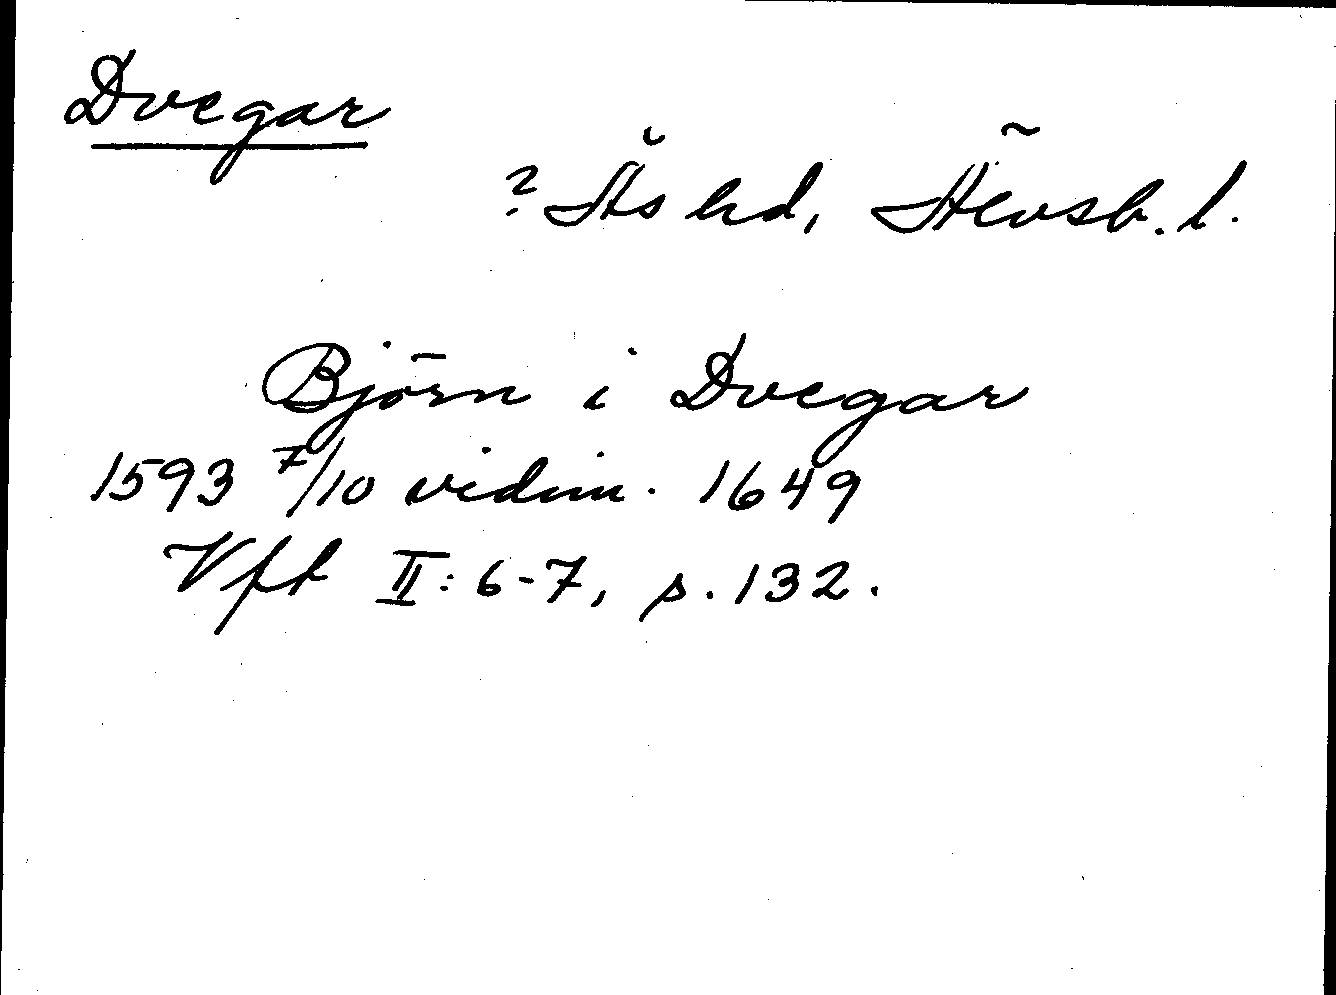 Dvegar
? Ås hd, Älvsb. l.
Björn i Dvegar
1593 7/10 vidim. 1649
Vft II: 6-7, s. 132.